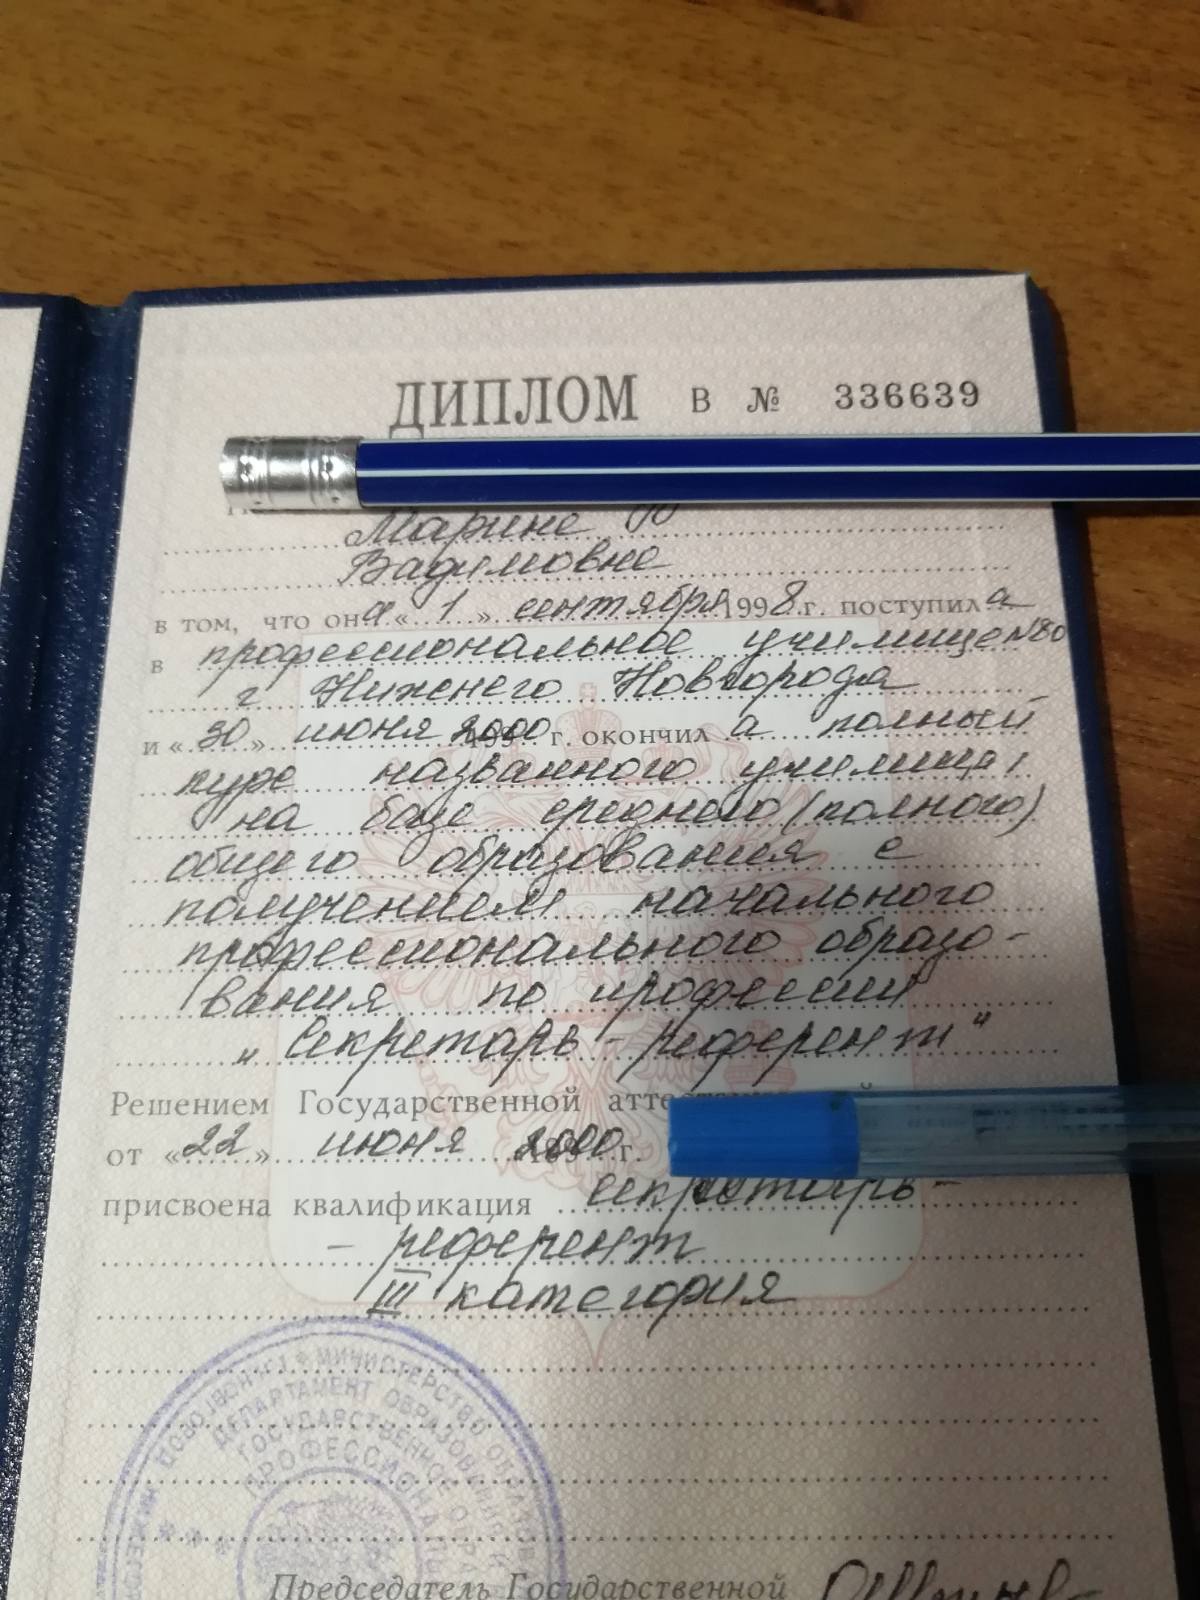 ДИПЛОМ В № 336639
Марине
Вадимовне
в том, что она « 1 » сентября 1998 г. поступила
в профессиональное училище №80
г Нижнего Новгорода
и « 30 » июня 2000 г. окончил а полный
курс названного училища
на базе среднего (полного)
общего образования с
получением начального
профессионального образо-
вания по профессии
„ Секретарь - референт "
Решением Государственной
от « 22 » июня 2000 г.
присвоена квалификация секретарь-
- референт
III категория
МИНИСТЕРСТВО
ДЕПАРТАМЕНТ
Председатель Государственной